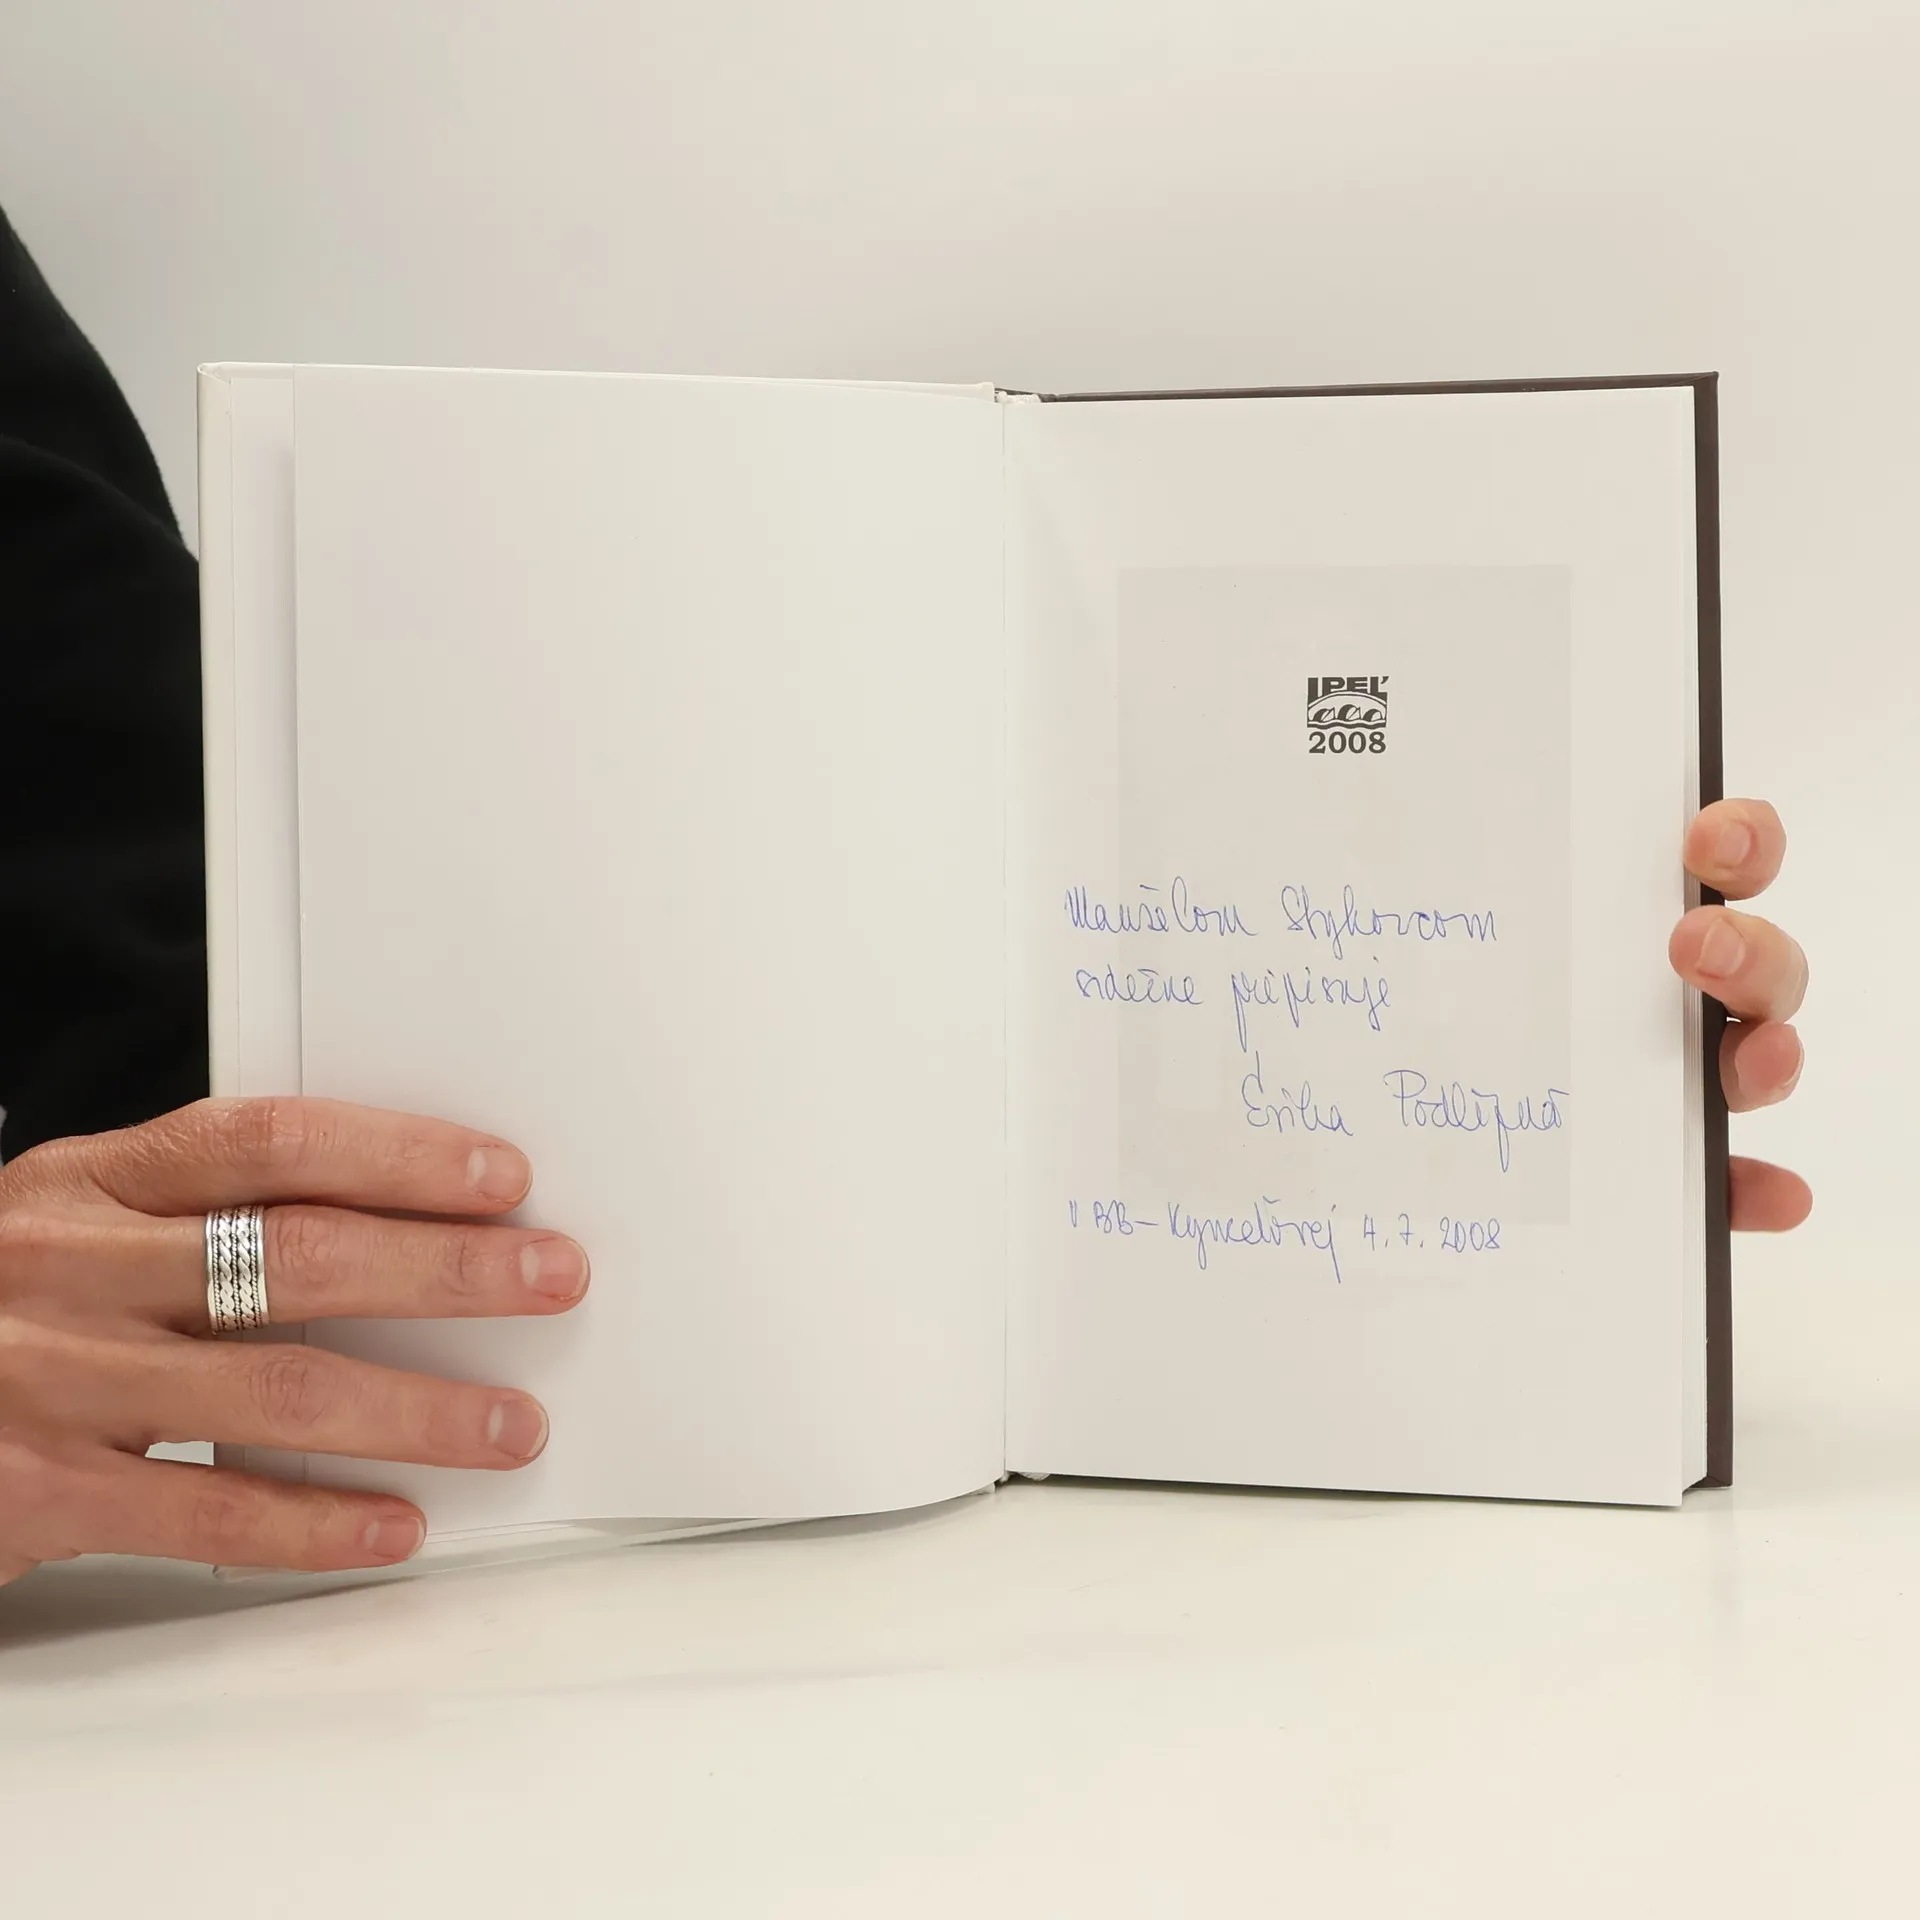 IPEĽ
2008
Manželom Stykovcom
srdečne pripisuje
Erika Podlipná
V BB – Kynceľovej 4.7.2008